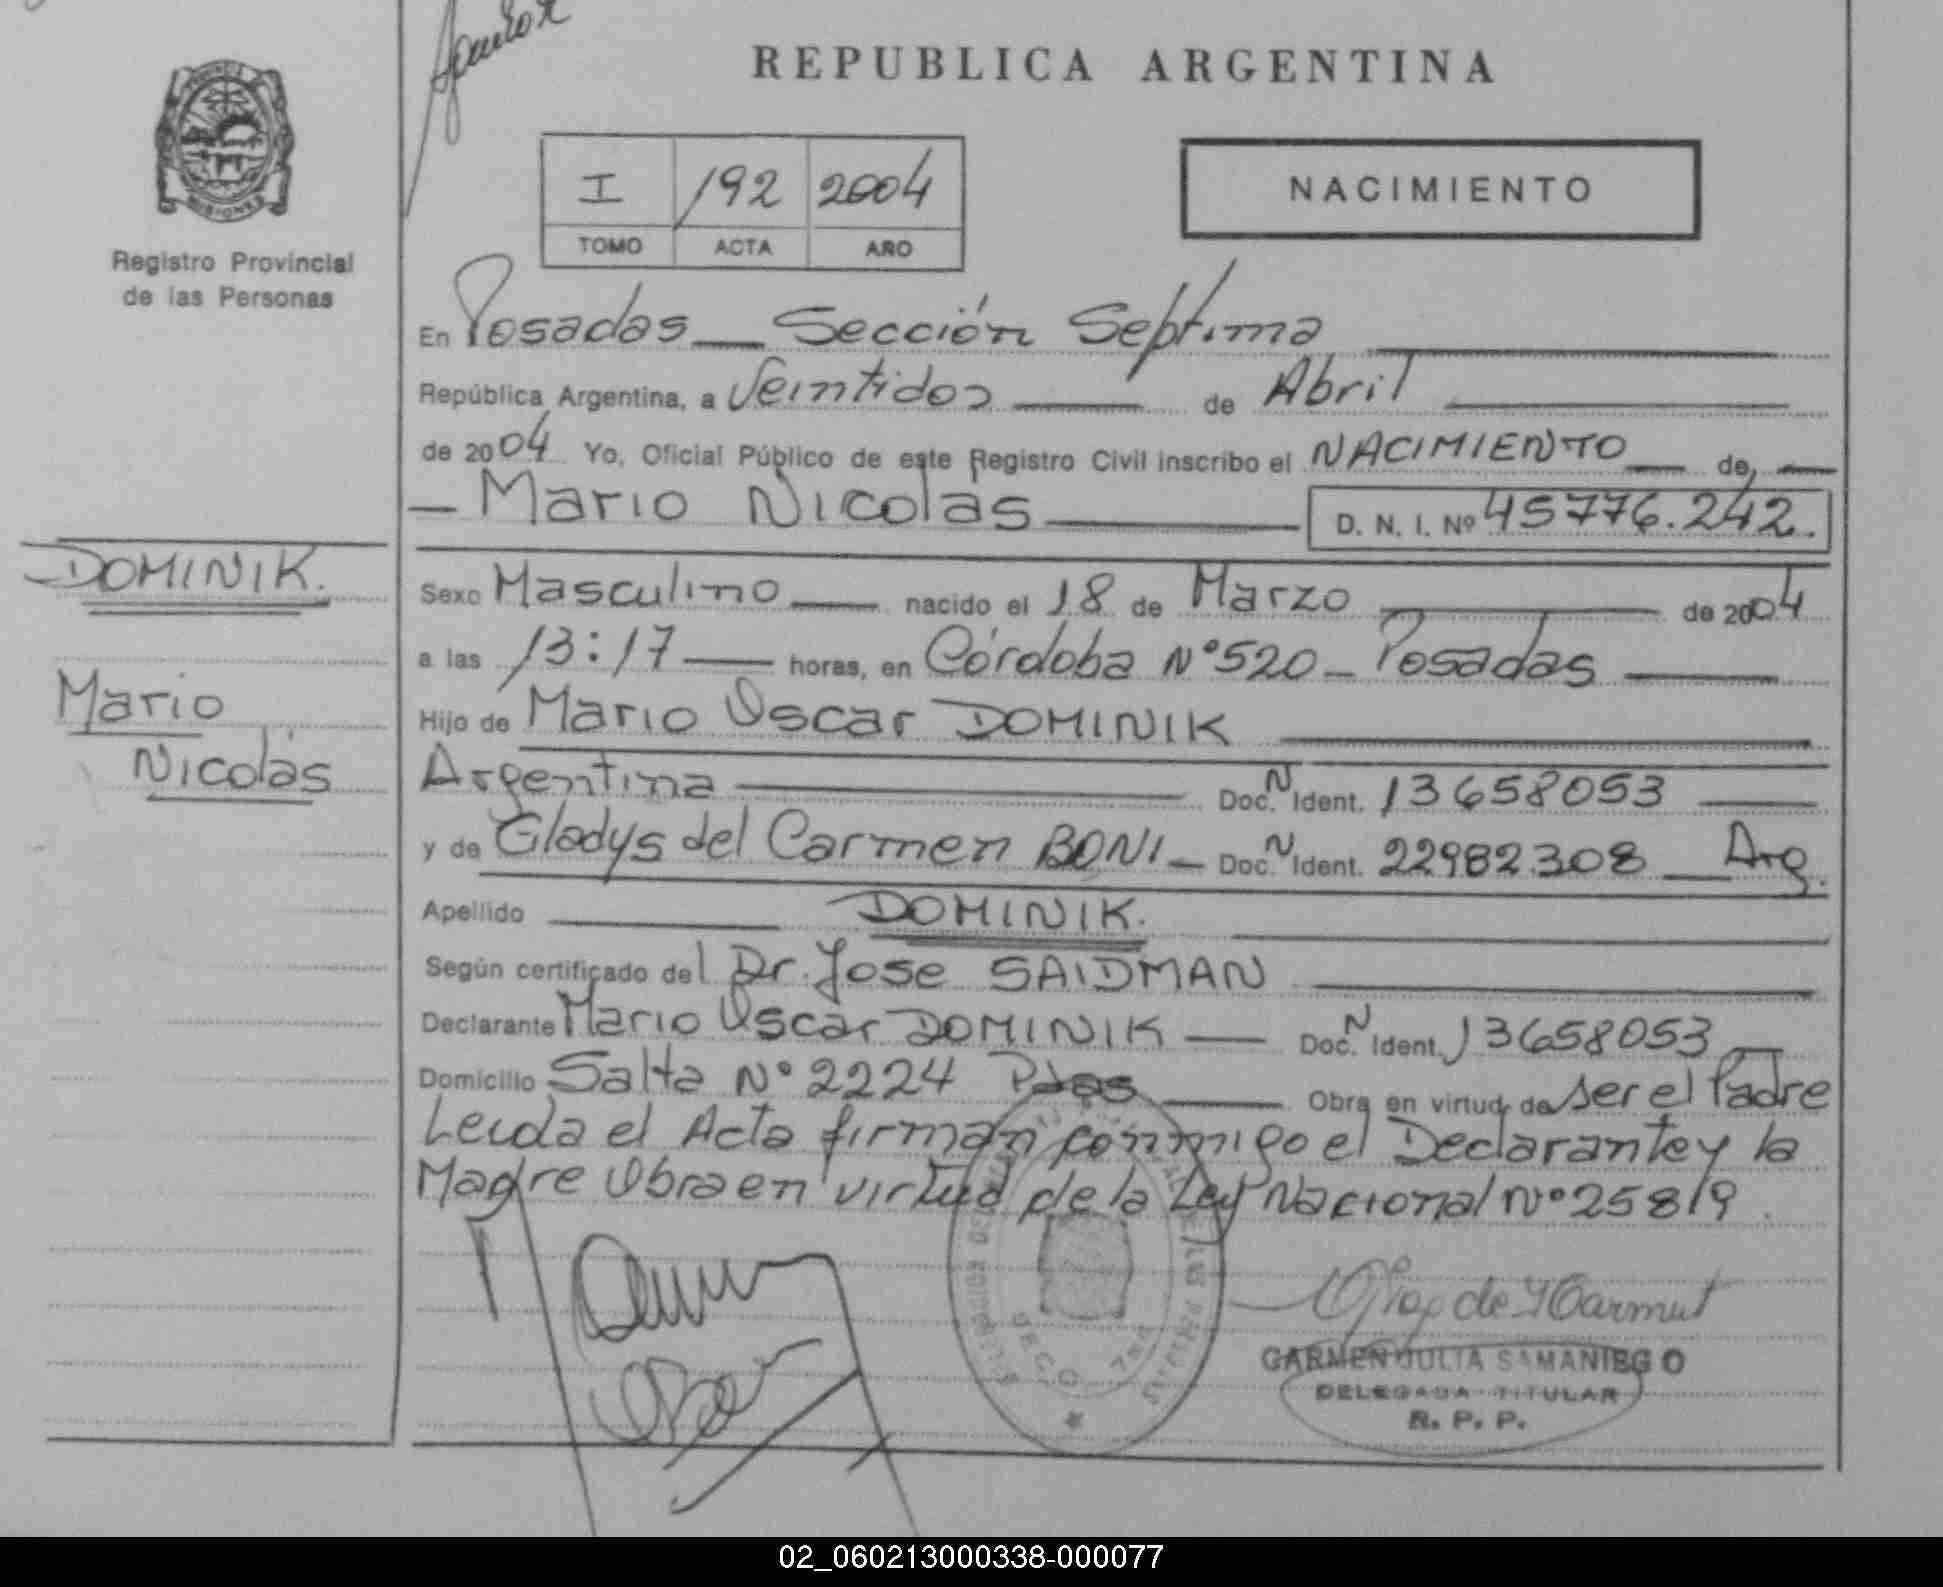 REPUBLICA ARGENTINA
PROVINCIA DE
MISIONES
Registro Provincial
de las Personas
I /192 2004
TOMO ACTA AÑO
NACIMIENTO
En Posadas — Sección Septima
República Argentina, a Veintidos de Abril
de 2004 Yo, Oficial Público de este Registro Civil inscribo el NACIMIENTO de
Mario Nicolás D. N. I. Nº 45776.242.
DOMINIK.
Mario
Nicolás
Sexo Masculino nacido el 18 de Marzo de 2004
a las 13:17 horas, en Córdoba Nº520 - Posadas
Hijo de Mario Oscar DOMINIK
Argentina Doc. N Ident. 13658053
y de Gladys del Carmen BONI - Doc. N Ident. 22982.308 Arg.
Apellido DOMINIK.
Según certificado del Dr. Jose SAIDMAN
Declarante Mario Oscar DOMINIK Doc. N Ident. 13658053
Domicilio Salta Nº 2224 Pdas Obra en virtud de ser el Padre
Leida el Acta firman conmigo el Declarante y la
Madre Obra en virtud de la Ley Nacional Nº 25819.
CARMEN JULIA SAMANIEGO
DELEGADA TITULAR
R. P. P.
02_060213000338-000077